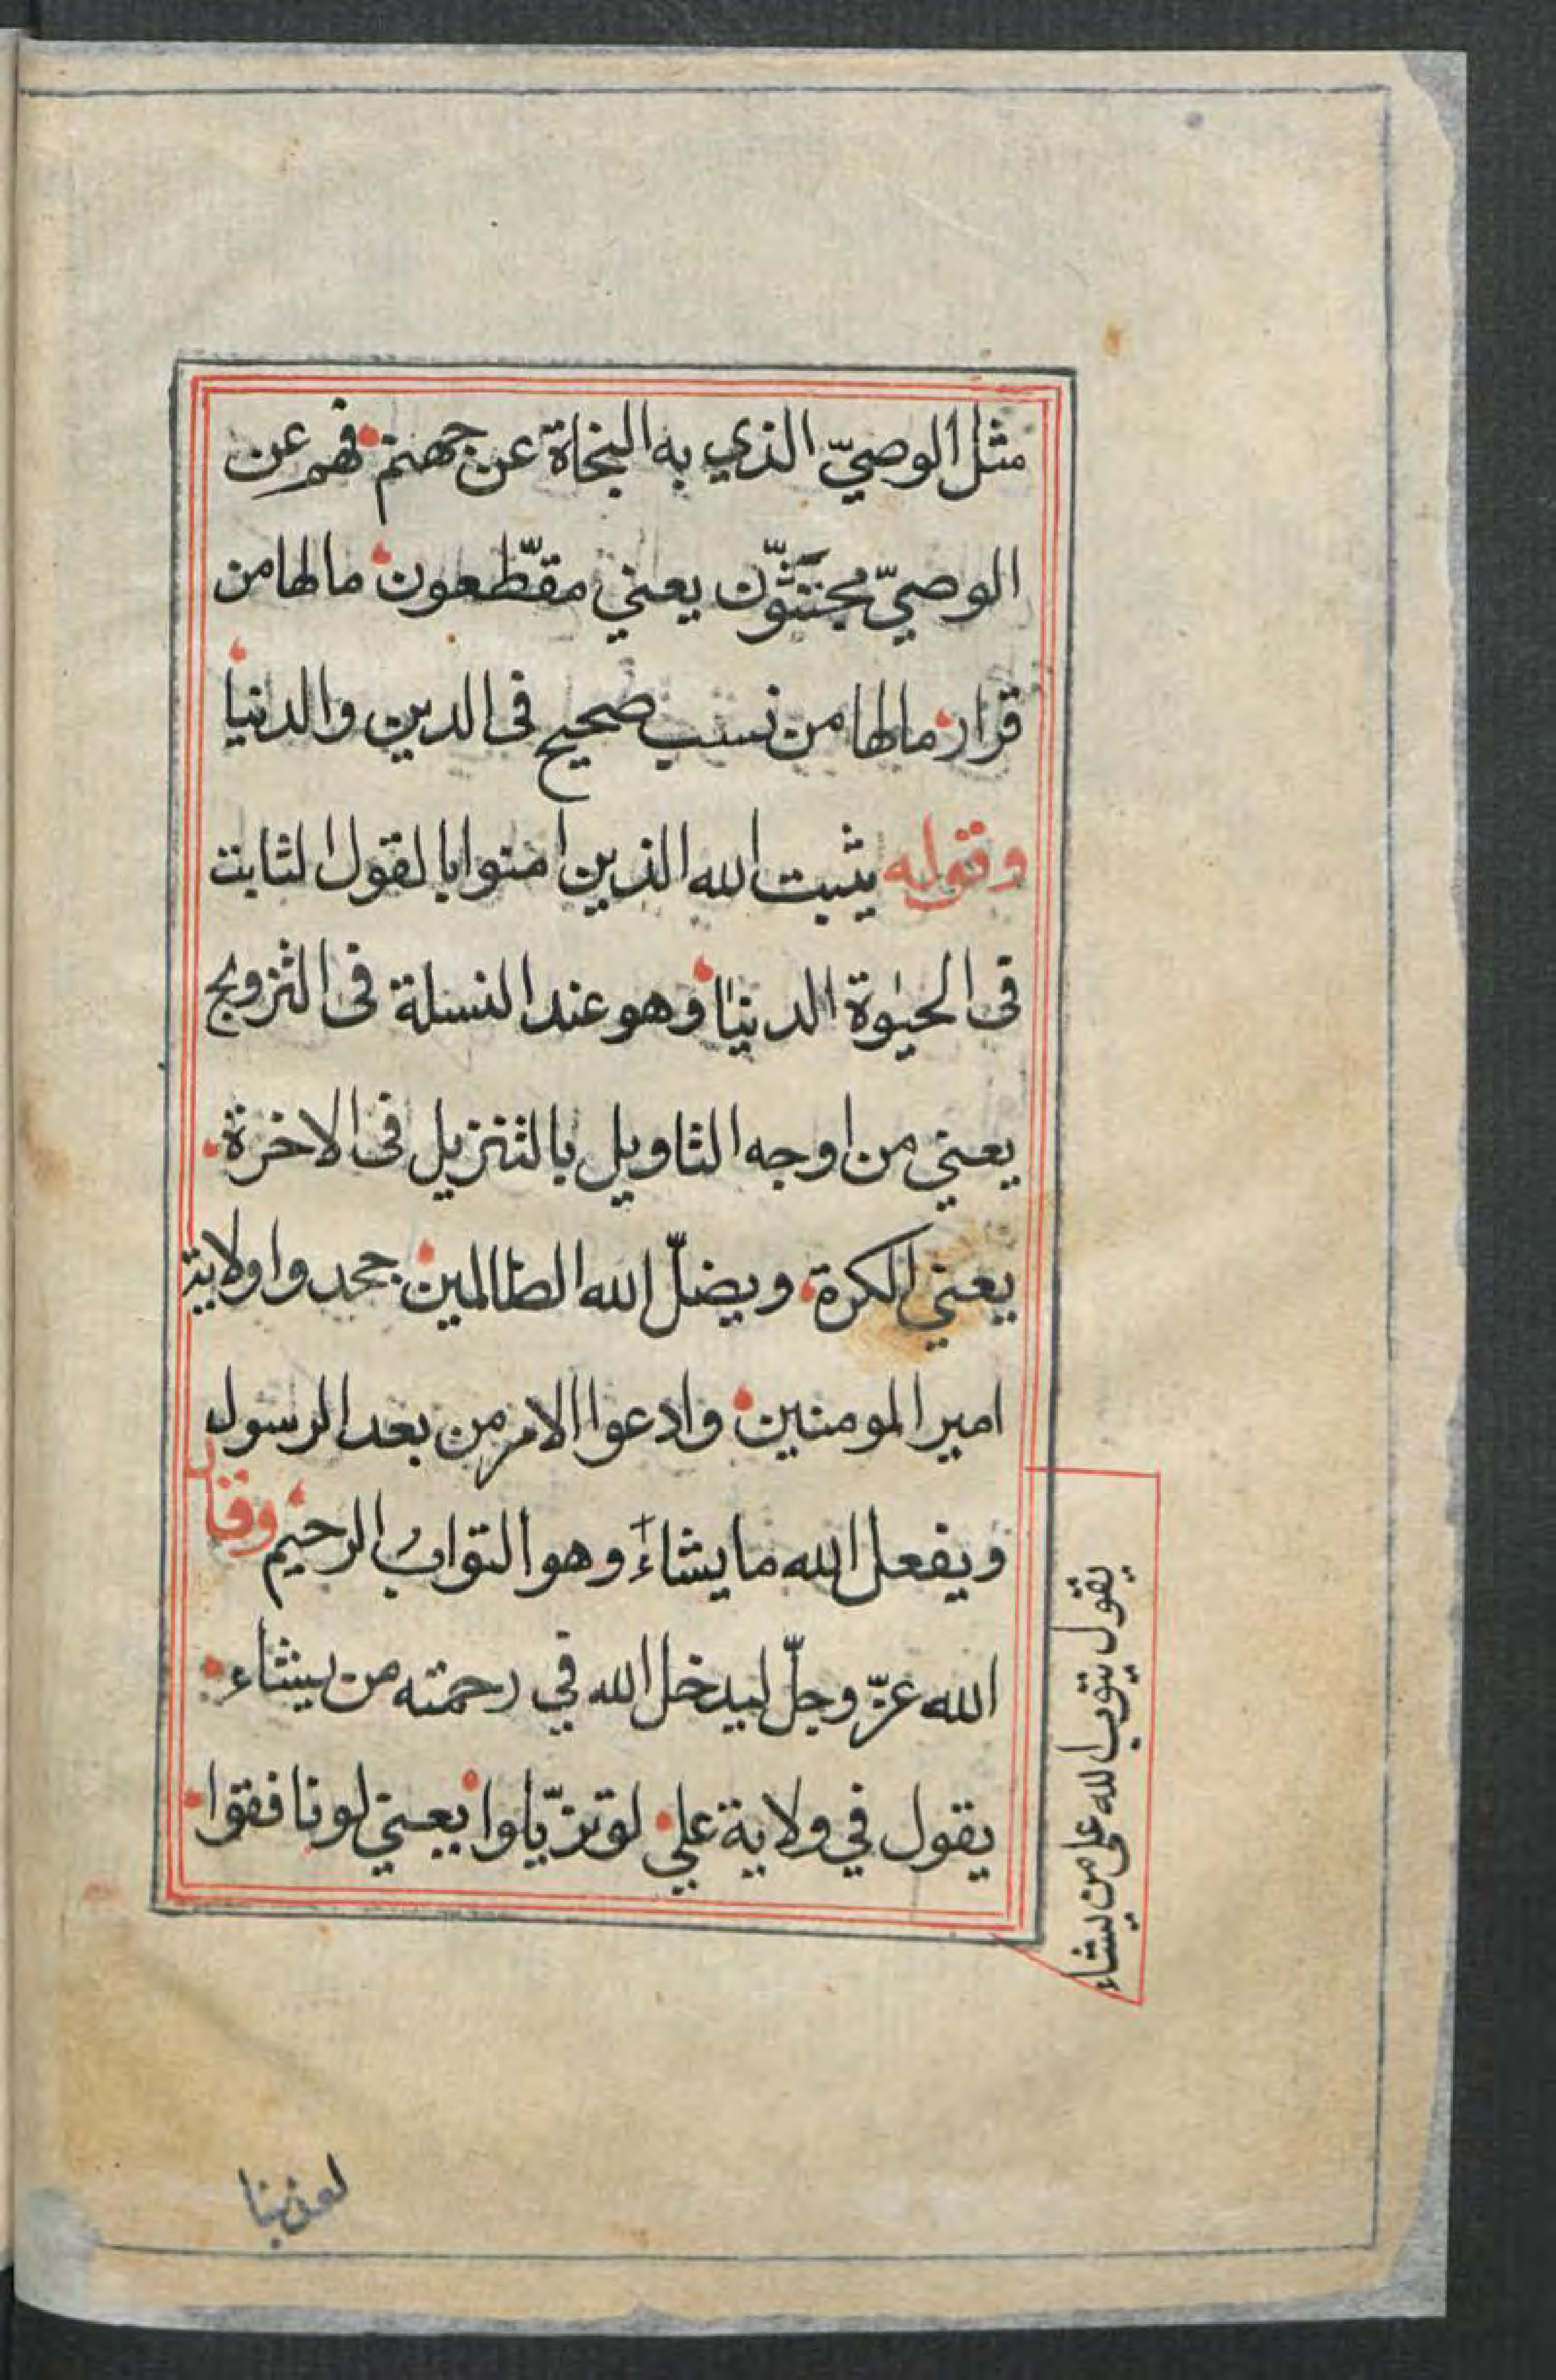 مثل الوصيّ الذي به النجاة عن جهنم فهم عن
الوصيّ مجتثّون يعني مقطّعون مالها من
قرار مالها من نسب صحيح فى الدين والدنيا
وقوله يثبت الله الذين امنوا بالقول الثابت
فى الحيوة الدنيا وهو عند النسلة فى التزويج
يعني من اوجه التاويل بالتنزيل فى الاخرة
يعني الكرة ويضلّ الله الظالمين جحدوا ولاية
امير المومنين وادعوا الامر من بعد الرسول
ويفعل الله ما يشاء وهو التواب الرحيم وقال
الله عزّ وجلّ ليدخل الله في رحمته من يشاء
يقول في ولاية علي لو تزيّلوا يعني لو نافقوا
يقول يتوب الله على من يشاء
لعذبنا